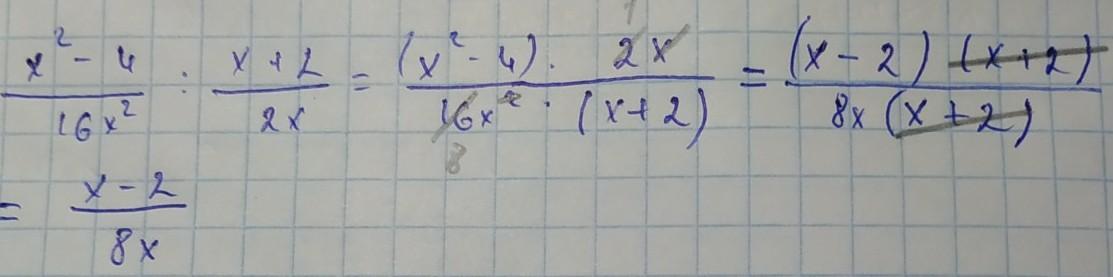 x² - 4 / 16x² : x + 2 / 2x = (x² - 4) · 2x / 16x² · (x + 2) = (x - 2)(x + 2) / 8x(x + 2)
1
8
= x - 2 / 8x